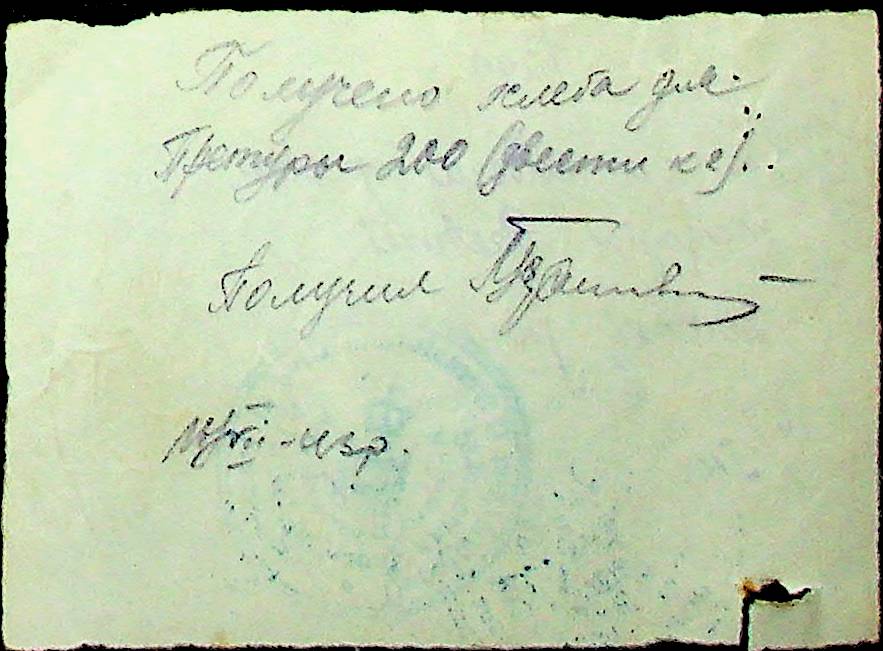 Получено хлеба для
Претуры 200 (двести кг).
Получил